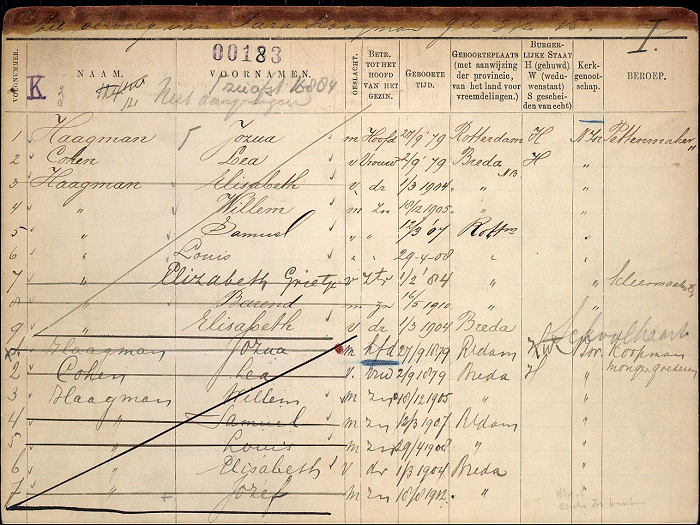 Het vervolg van Sara Haagman geb.
I.
00183
K
VOLGNUMMER.
NAAM.
VOORNAMEN.
GESLACHT.
BETR. TOT HET HOOFD VAN HET GEZIN.
GEBOORTE TIJD.
GEBOORTEPLAATS (met aanwijzing der provincie, van het land voor vreemdelingen.)
BURGERLIJKE STAAT H (gehuwd) W (weduwenstaat) S gescheiden van echt)
Kerkgenootschap.
BEROEP.
Niet aangeslagen
1 Haagman Jozua m Hoofd 27/9 '79 Rotterdam H N Isr Pettenmaker
2 Cohen Lea v Vrouw 2/9 '79 Breda H " "
NB
3 Haagman Elisabeth v dr 1/3 1904. "
4 " Willem m Zn 18/12 1905. "
5 " Samuel " " 12/3 '07 Rottm
6 " Louis " " 29-4-08 "
7 " Elizabeth Grietje v Ztr 1/2 '84 " "
8 " Barend m zn 16/5 1910 " "
9 " Elisabeth v dr 1/3 1904 Breda
Schoolkaart
1 Haagman Jozua m hfd 27/9 1879 R.dam H W Isr. Koopman
2 Cohen Lea v. vrw 2/9 1879 Breda H
3 Haagman Willem m zn 18/12 1905 "
4 " Samuel m zn 12/3 1907 R.dam
5 " Louis m zn 29/4 1908 "
6 " Elisabeth v dr 1/3 1904 Breda
7 " Jozef m zn 18/8 1912. "